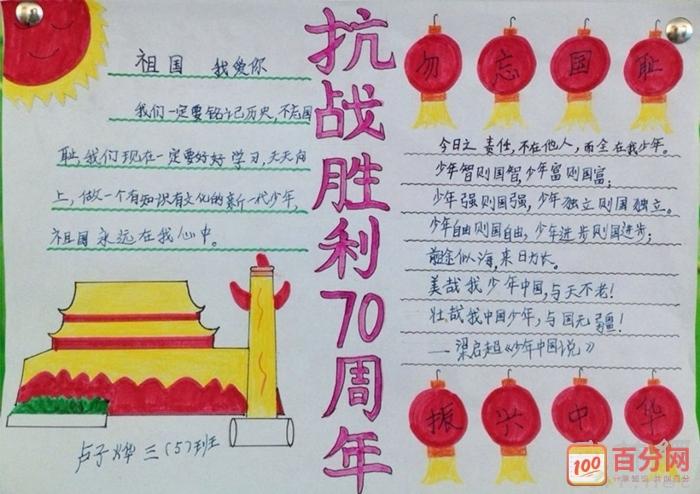 祖国 我爱你
我们一定要铭记历史,不忘国
耻,我们现在一定要好好学习,天天向
上,做一个有知识有文化的新一代少年,
祖国永远在我心中。
卢子烨 三(5)班
抗战胜利70周年
勿忘国耻
今日之责任,不在他人,而全在我少年。
少年智则国智,少年富则国富;
少年强则国强,少年独立则国独立。
少年自由则国自由,少年进步则国进步;
前途似海,来日方长。
美哉我少年中国,与天不老!
壮哉我中国少年,与国无疆!
——梁启超《少年中国说》
振兴中华
100 百分网